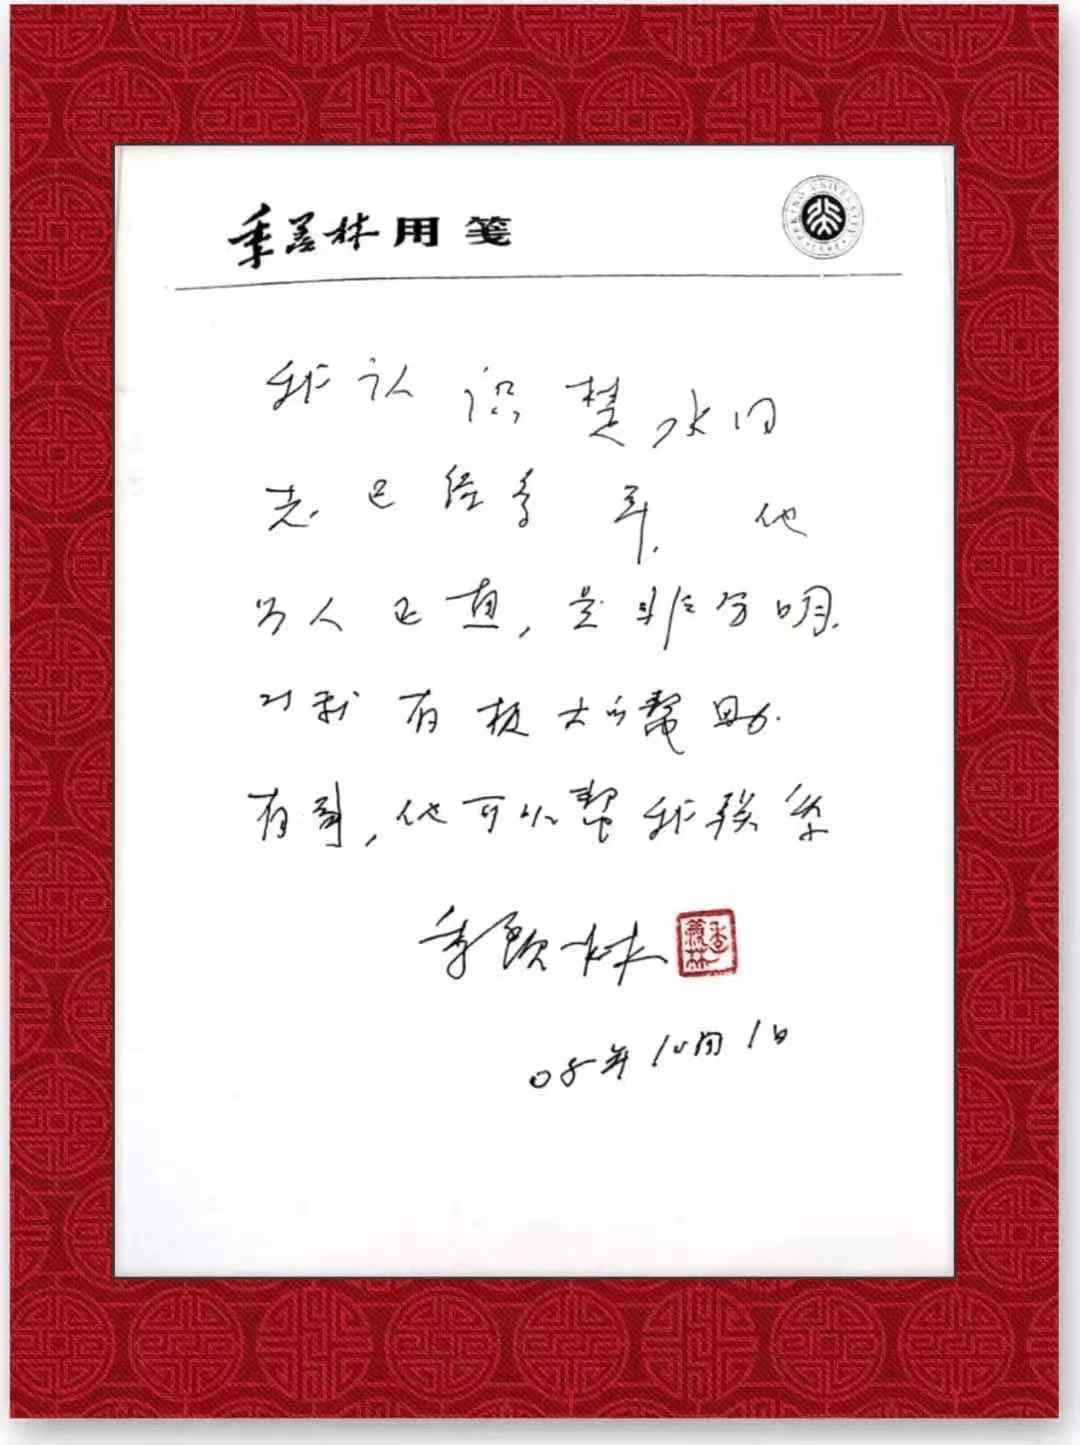 季羡林用箋
PEKING UNIVERSITY
我认识楚水同
志已经多年，他
为人正直，是非分明，
对我有极大的幫助。
有事，他可以幫我联系
季羡林
季羡林
08年10月1日